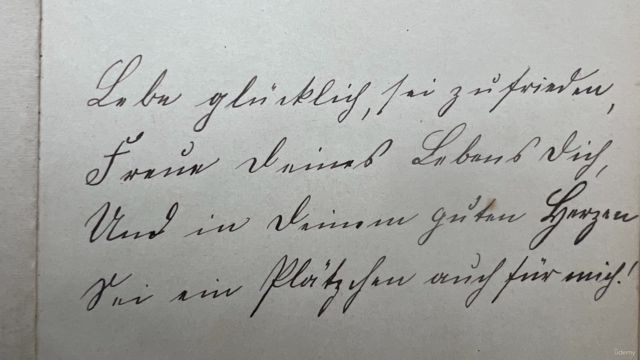 Lebe glücklich, sei zufrieden,
Freue Deines Lebens Dich,
Und in Deinem guten Herzen
Sei ein Plätzchen auch für mich!
Udemy